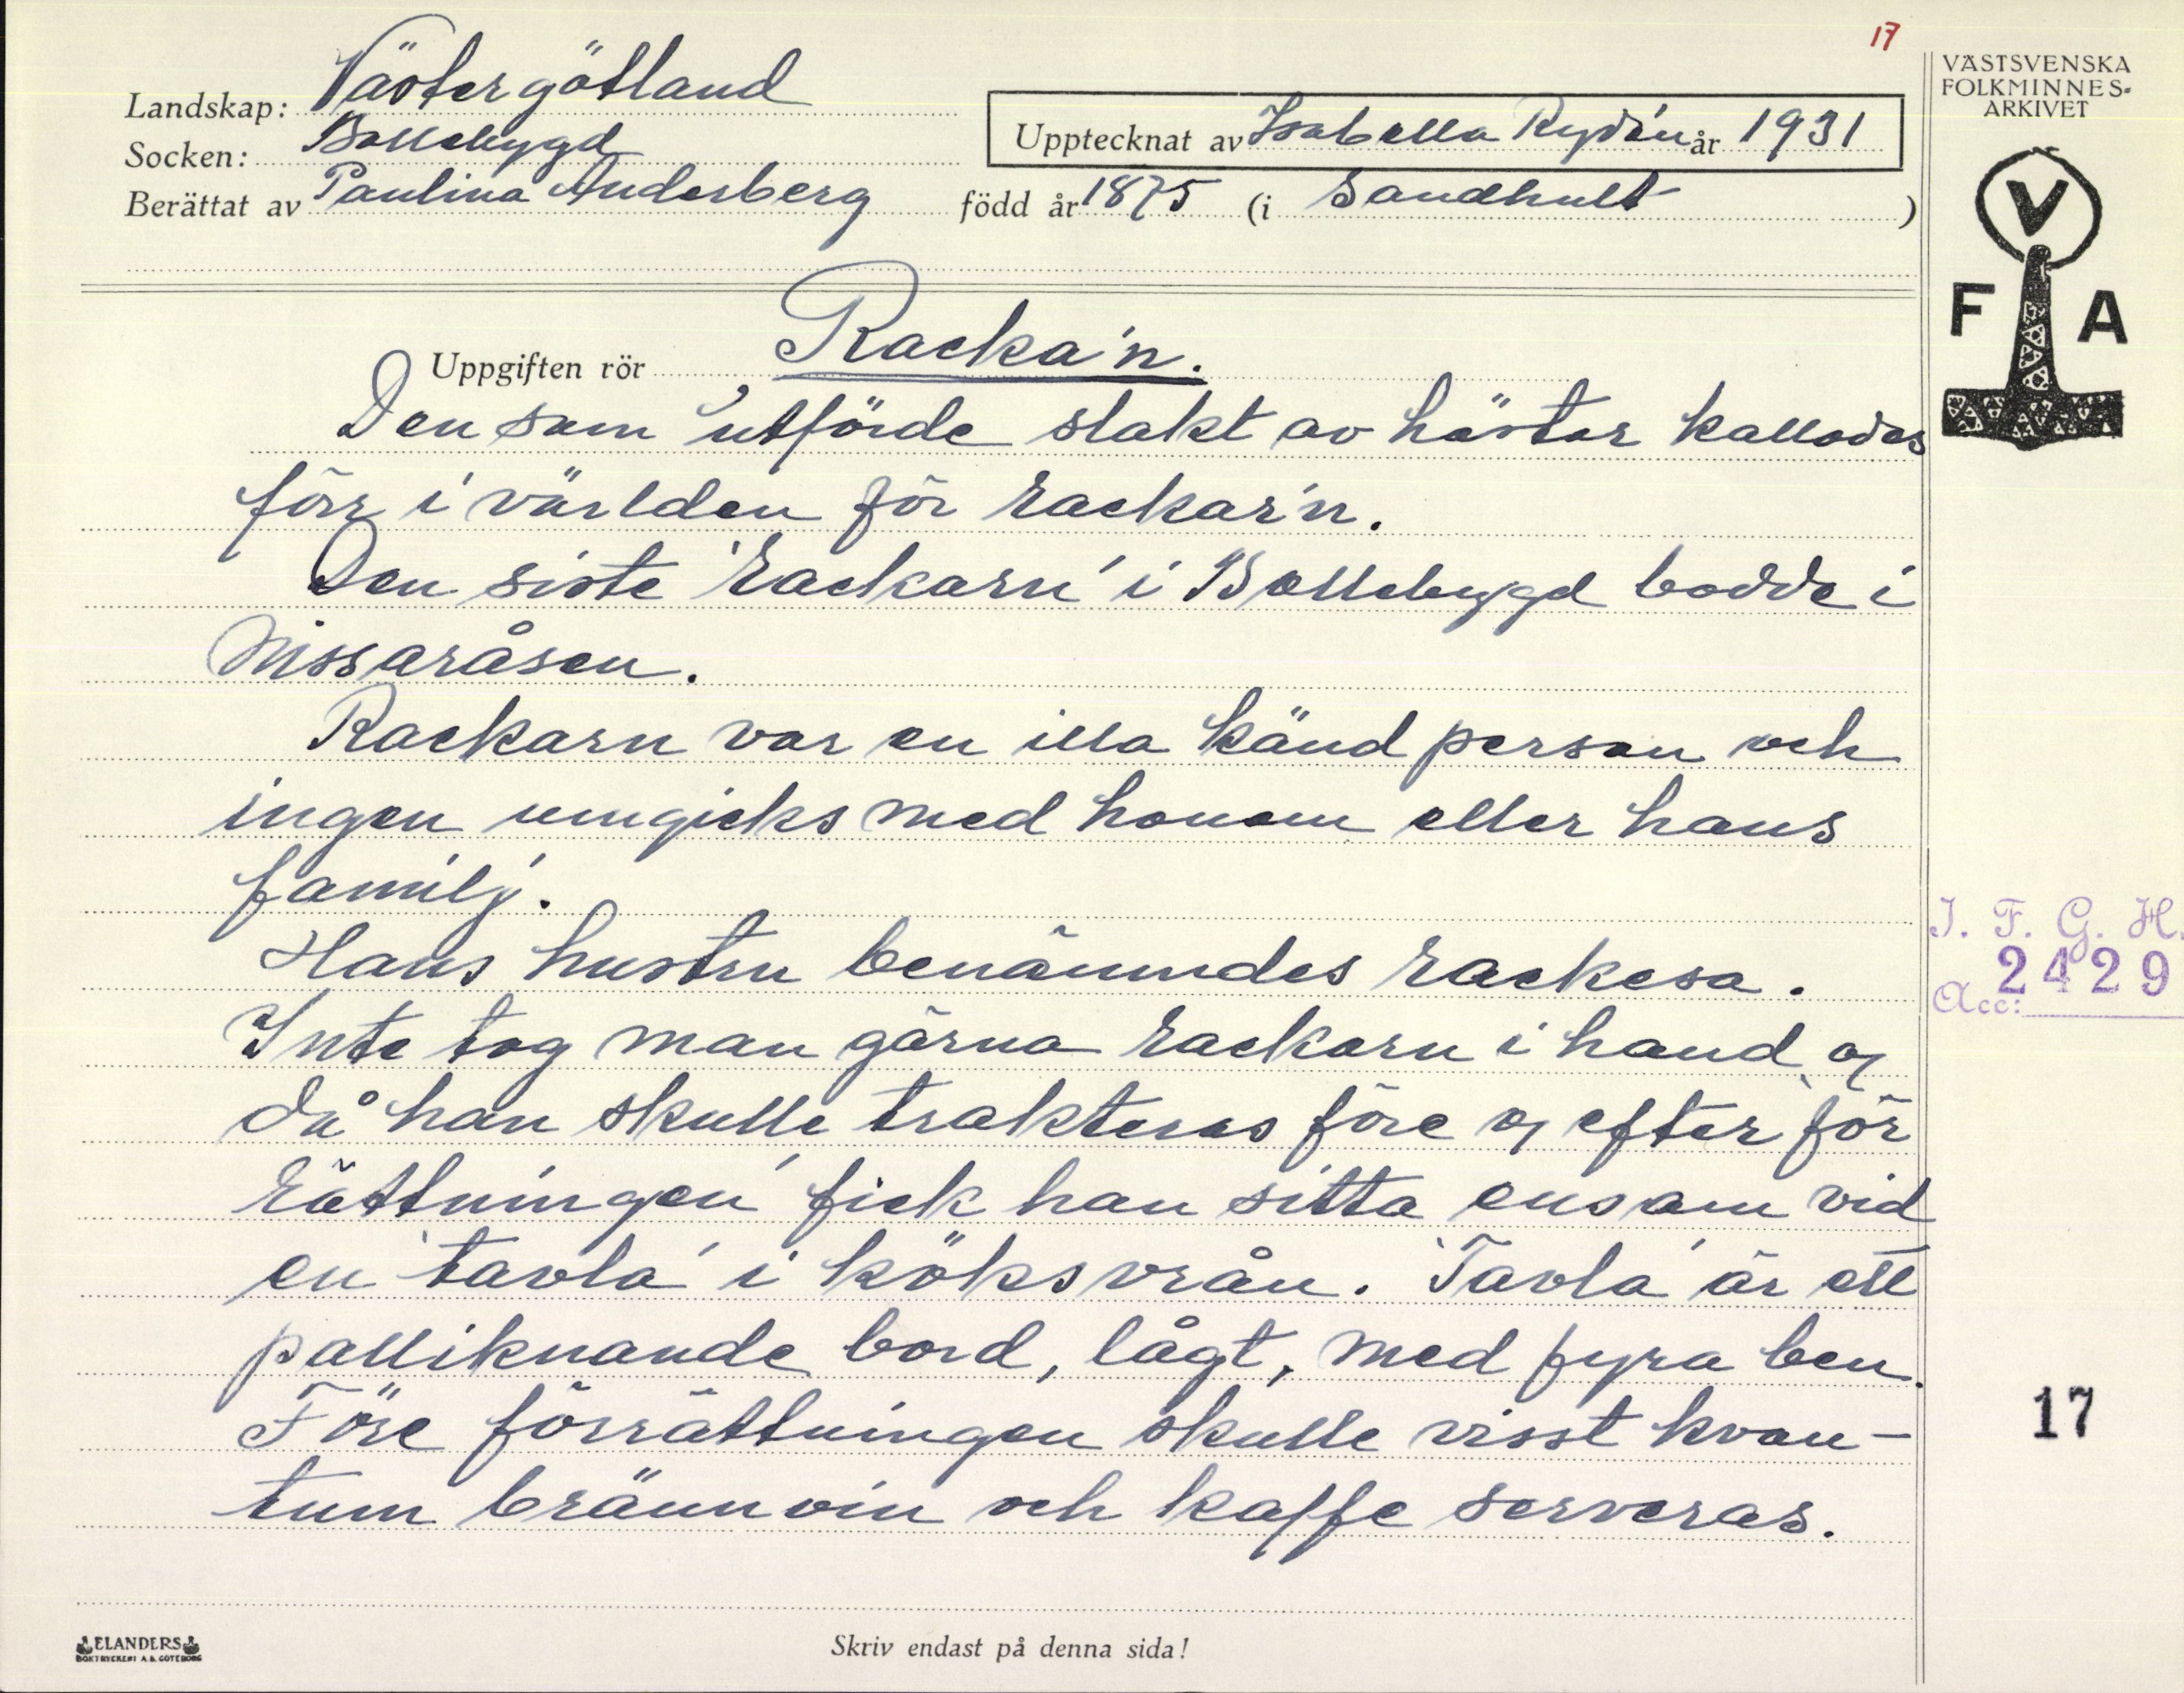 17
VÄSTSVENSKA
FOLKMINNES-
ARKIVET
Landskap: Västergötland
Upptecknat av Isabella Rydén år 1931
Socken: Bollebygd
Berättat av Paulina Anderberg född år 1875 (i Sandhult )
V
F A
Uppgiften rör Racka'n.
Den som utförde slakt av hästar kallades
förr i världen för rackar'n.
Den siste 'rackarn' i Bollebygd bodde i
Nissaråsen.
Rackarn var en illa känd person och
ingen umgicks med honom eller hans
familj.
Hans hustru benämndes rackesa.
Inte tog man gärna rackarn i hand o
då han skulle trakteras före o efter 'för
rättningen' fick han sitta ensam vid
en 'tavla' i köksvrån. 'Tavla' är ett
palliknande bord, lågt, med fyra ben.
Före förrättningen skulle visst kvan-
tum brännvin och kaffe serveras.
I. F. G. H.
2429
Acc:
17
ELANDERS
BOKTRYCKERI A.B. GÖTEBORG
Skriv endast på denna sida!